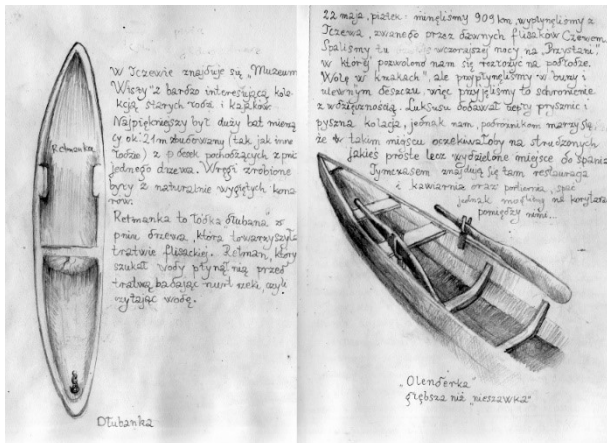 Retmanka
W Tczewie znajduje się „Muzeum
Wisły” z bardzo interesującą kole-
kcją starych łodzi i kajaków.
Najpiękniejszy był duży bat mierzą-
cy ok. 21 m zbudowany (tak jak inne
łodzie) z desek pochodzących z pnia
jednego drzewa. Wręgi zrobione
były z naturalnie wygiętych kona-
rów.
Retmanka to łódka dłubana z
pnia drzewa, która towarzyszyła
tratwie flisackiej. Retman, który
szukał wody płynął nią przed
tratwą badając nurt rzeki, czyli
czytając wodę.
Dłubanka
22 maja, piątek: minęliśmy 909 km, wypłynęliśmy z
Tczewa, zwanego przez dawnych flisaków Czewem.
Spaliśmy tu wczorajszej nocy na „Przystani”
w której pozwolono nam się rozłożyć na podłodze.
Wolę w krzakach, ale przypłynęliśmy w burzy i
ulewnym deszczu, więc przyjęliśmy to schronienie
z wdzięcznością. Luksusu dodawał ciepły prysznic i
pyszna kolacja, jednak nam, podróżnikom marzy się,
że w takim miejscu oczekiwałoby na strudzonych
jakieś proste lecz wydzielone miejsce do spania
Tymczasem znajdują się tam restauracja
i kawiarnia oraz portiernia, spać
jednak mogliśmy na korytarzu
pomiędzy nimi...
„Olenderka”
głębsza niż „nieszawka”